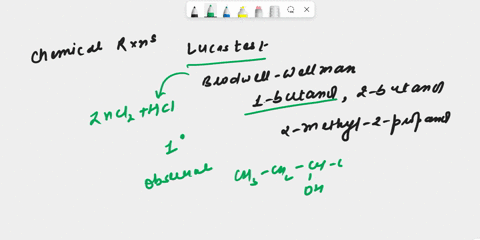 Chemical Rxns
Lucas test
Brodwell-Wellman
1-butanol, 2-butanol
2-methyl-2-propanol
ZnCl2 + HCl
1°
CH3-CH2-CH-C
OH